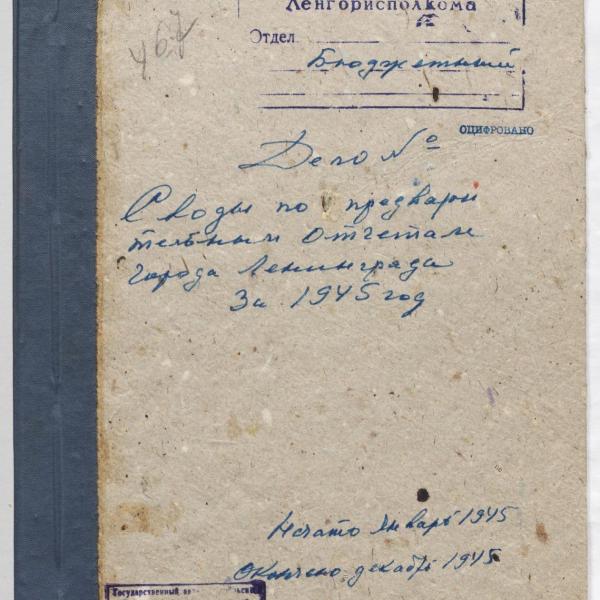 467
Ленгорисполкома
Отдел
Бюджетный
ОЦИФРОВАНО
Дело №
Своды по предвари
тельным отчетам
города Ленинграда
За 1945 год
Начато январь 1945
Окончено декабрь 1945
Государственный